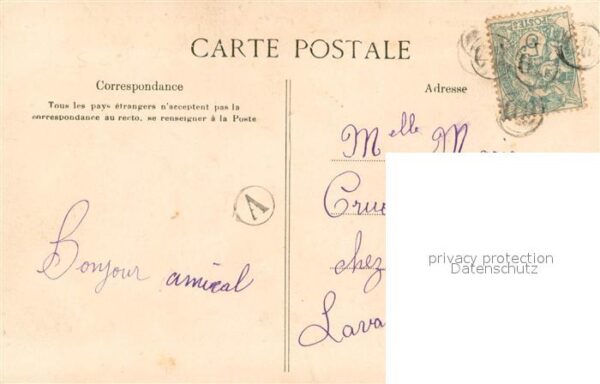 CARTE POSTALE
Correspondance
Tous les pays étrangers n'acceptent pas la
correspondance au recto, se renseigner à la Poste
Adresse
POSTES
Melle M
chez
Lava
A
Bonjour amical
privacy protection
Datenschutz